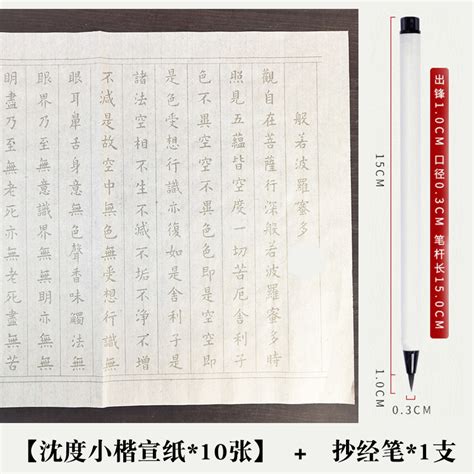 般若波羅蜜多
觀自在菩薩行深般若波羅蜜多時
照見五蘊皆空度一切苦厄舍利子
色不異空空不異色色即是空空即
是色受想行識亦復如是舍利子是
諸法空相不生不滅不垢不淨不增
不減是故空中無色無受想行識無
眼耳鼻舌身意無色聲香味觸法無
眼界乃至無意識界無無明亦無無
明盡乃至無老死亦無老死盡無苦
15CM
1.0CM
0.3CM
出锋1.0CM 口径0.3CM 笔杆长15.0CM
【沈度小楷宣纸*10张】 + 抄经笔*1支